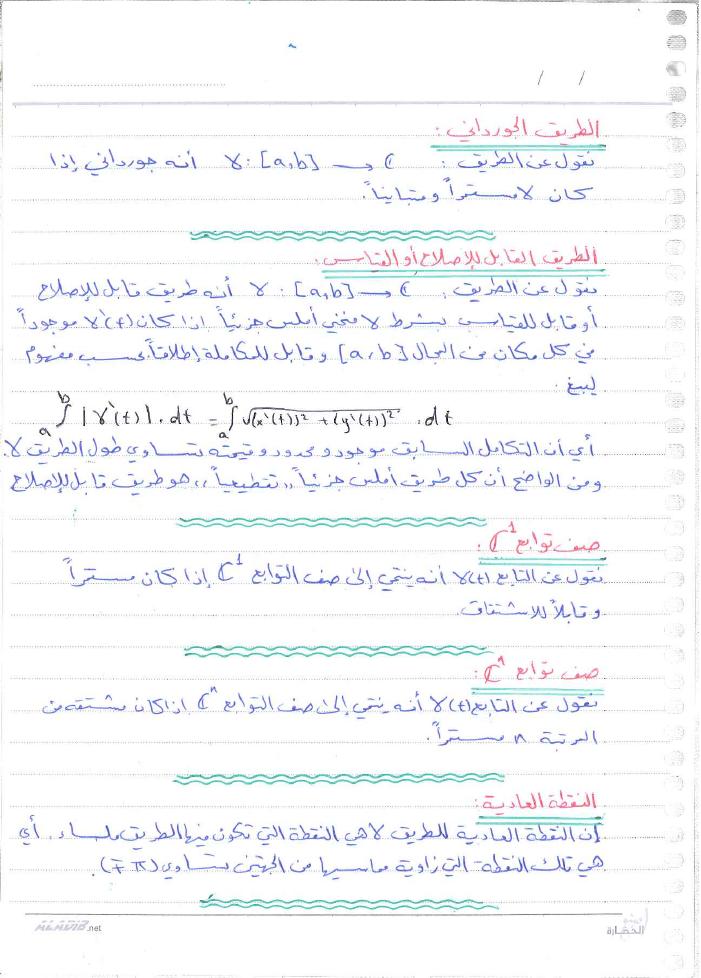 / /
الطريق الجورداني:
نقول عن الطريق: γ: [a,b] → ℂ أنه جورداني إذا
كان γ مستمراً ومتبايناً.
الطريق القابل للإصلاح أو القياس:
نقول عن الطريق: γ: [a,b] → ℂ أنه طريق قابل للإصلاح
أو قابل للقياس بشرط γ منحني أملس جزئياً إذا كان γ'(t) موجوداً
في كل مكان من المجال [a,b] وقابل للمكاملة إطلاقاً بحسب مفهوم
ليبغ.
a∫b |γ'(t)|. dt = a∫b √(x'(t))² + (y'(t))² . dt
أي أن التكامل السابق موجود و محدود و قيمته تساوي طول الطريق γ.
ومن الواضح أن كل طريق أملس جزئياً ,, تقطيعياً ,, هو طريق قابل للإصلاح
صف توابع C¹:
نقول عن التابع γ(t) أنه ينتمي إلى صف التوابع C¹ إذا كان مستمراً
وقابلاً للاشتقاق.
صف توابع Cⁿ:
نقول عن التابع γ(t) أنه ينتمي إلى صف التوابع Cⁿ إذا كان مشتقه من
المرتبة n مستمراً.
النقطة العادية:
إن النقطة العادية للطريق γ هي النقطة التي تكون فيها الطريق ملساء. أي
هي تلك النقطة التي زاوية مماسيها من الجهتين تساوي (∓π).
.net
الحضارة